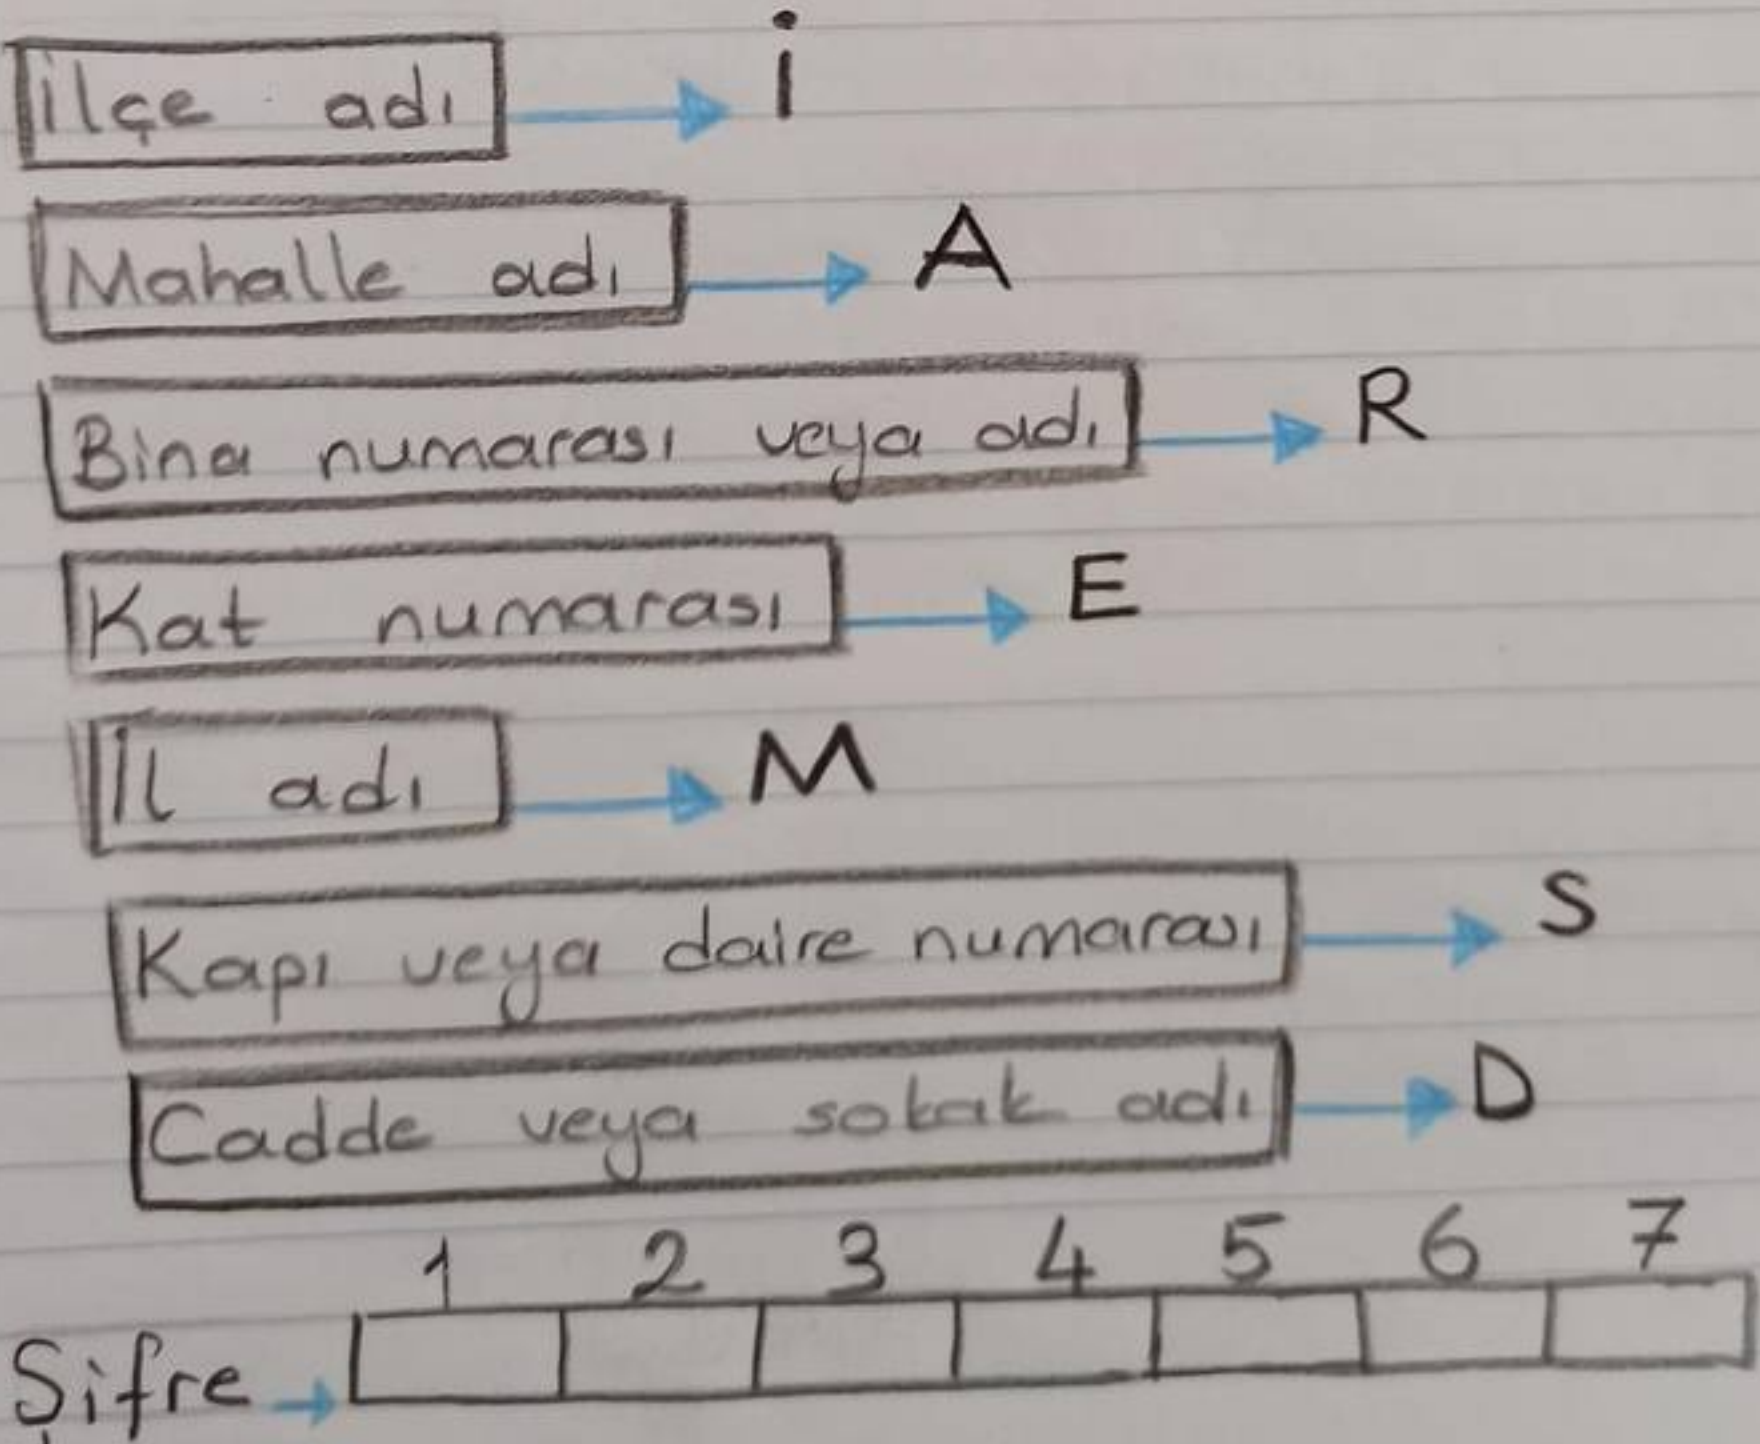 İlçe adı → İ
Mahalle adı → A
Bina numarası veya adı → R
Kat numarası → E
İl adı → M
Kapı veya daire numarası → S
Cadde veya sokak adı → D
1 2 3 4 5 6 7
Şifre →